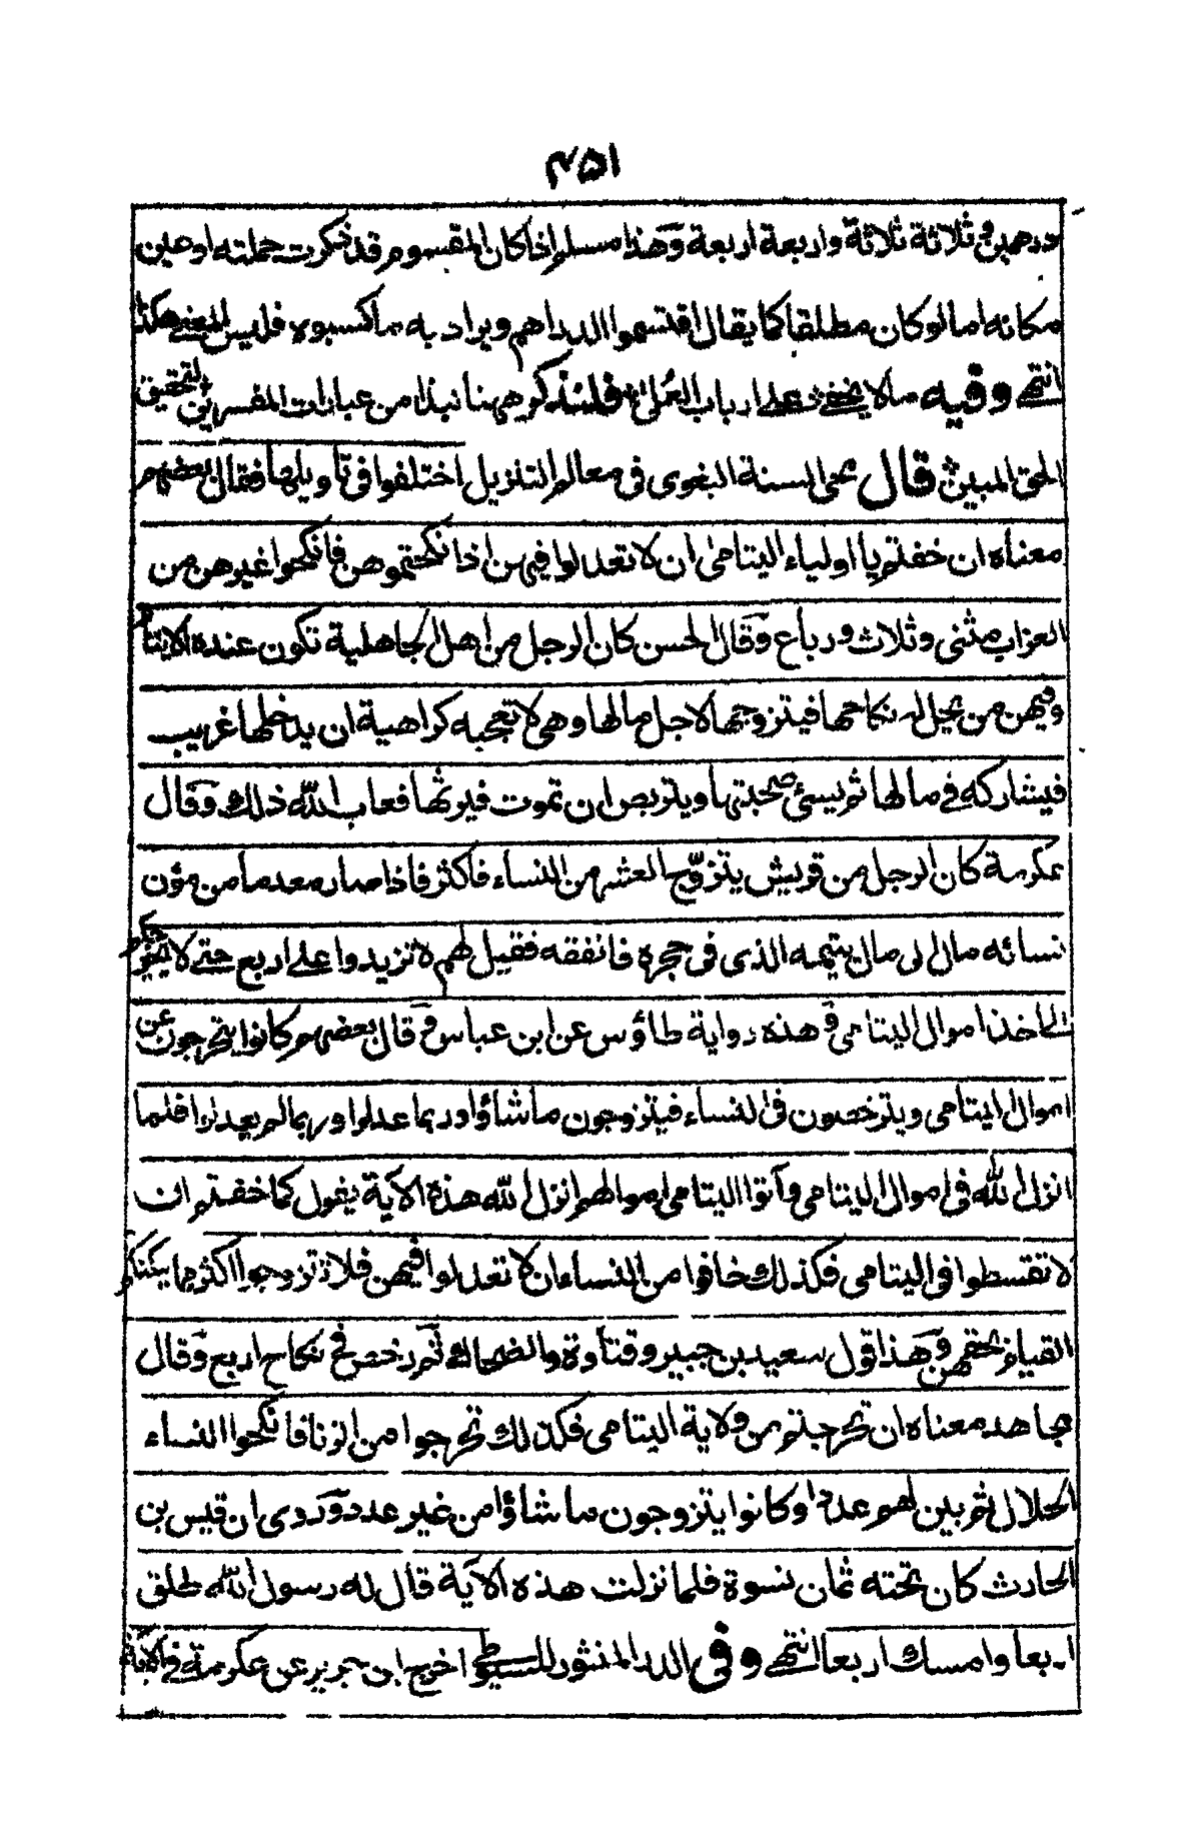 ۴۵۱
درهمين وثلاثة ثلاثة واربعة اربعة وهذا مسلم اذا كان المقسوم قد ذكرت جملته او عين
مكانه امالوكان مطلقا كما يقال اقتسموا الدراهم ويراد به ما كسبوه فليس المعنى هكذا
انتهى وفيه مالا يخفى على ارباب العلى فلنذكر ههنا نبذا من عبارات المفسرين لتحقيق
الحق المبين قال محى السنة البغوى فى معالم التنزيل اختلفوا فى تأويلها فقال بعضهم
معناه ان خفتم يا اولياء اليتامى ان لا تعدلوا فيهن اذا نكحتموهن فانكحوا غيرهن من
العزاب مثنى وثلاث ورباع وقال الحسن كان الرجل من اهل الجاهلية تكون عنده الايتام
وفيهن من يحل له نكاحها فيتزوجها لاجل مالها وهى لا تعجبه كراهية ان يدخلها غريب
فيشاركه فى مالها ثم يسئ صحبتها ويتربص ان تموت فيرثها فعاب الله ذلك وقال
عكرمة كان الرجل من قريش يتزوج العشر من النساء فاكثر فاذا صار معدما من مؤن
نسائه مال الى مال يتيمه الذى فى حجره فانفقه فقيل لهم لا تزيدوا على اربع حتى لا يحوجكم
الى اخذ اموال اليتامى وهذه رواية طاؤس عن ابن عباس وقال بعضهم كانوا يتحرجون عن
اموال اليتامى ويترخصون فى النساء فيتزوجون ما شاؤا وربما عدلوا وربما لم يعدلوا فلما
انزل الله فى اموال اليتامى وآتوا اليتامى اموالهم انزل الله هذه الآية يقول كما خفتم ان
لا تقسطوا فى اليتامى فكذلك خافوا من النساء ان لا تعدلوا فيهن فلا تزوجوا اكثر مما يمكنكم
القيام بحقهن وهذا قول سعيد بن جبير وقتاوة والضحاك ثم رخص فى نكاح اربع وقال
مجاهد معناه ان تحرجتم من ولاية اليتامى فكذلك تحرجوا من الزنا فانكحوا النساء
الحلال ثم بين لهم عددا وكانوا يتزوجون ما شاؤا من غير عدد وروى ان قيس بن
الحارث كان تحته ثمان نسوة فلما نزلت هذه الآية قال له رسول الله طلق
اربعا وامسك اربعا انتهى وفى الدر المنثور للسيوطى اخرج ابن جرير عن عكرمة فى الآية